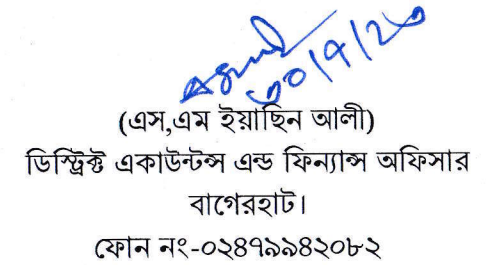 ৩০/৭/২৩
(এস,এম ইয়াছিন আলী)
ডিস্ট্রিক্ট একাউন্টস এন্ড ফিন্যান্স অফিসার
বাগেরহাট।
ফোন নং-০২৪৭৯৯৪২০৮২